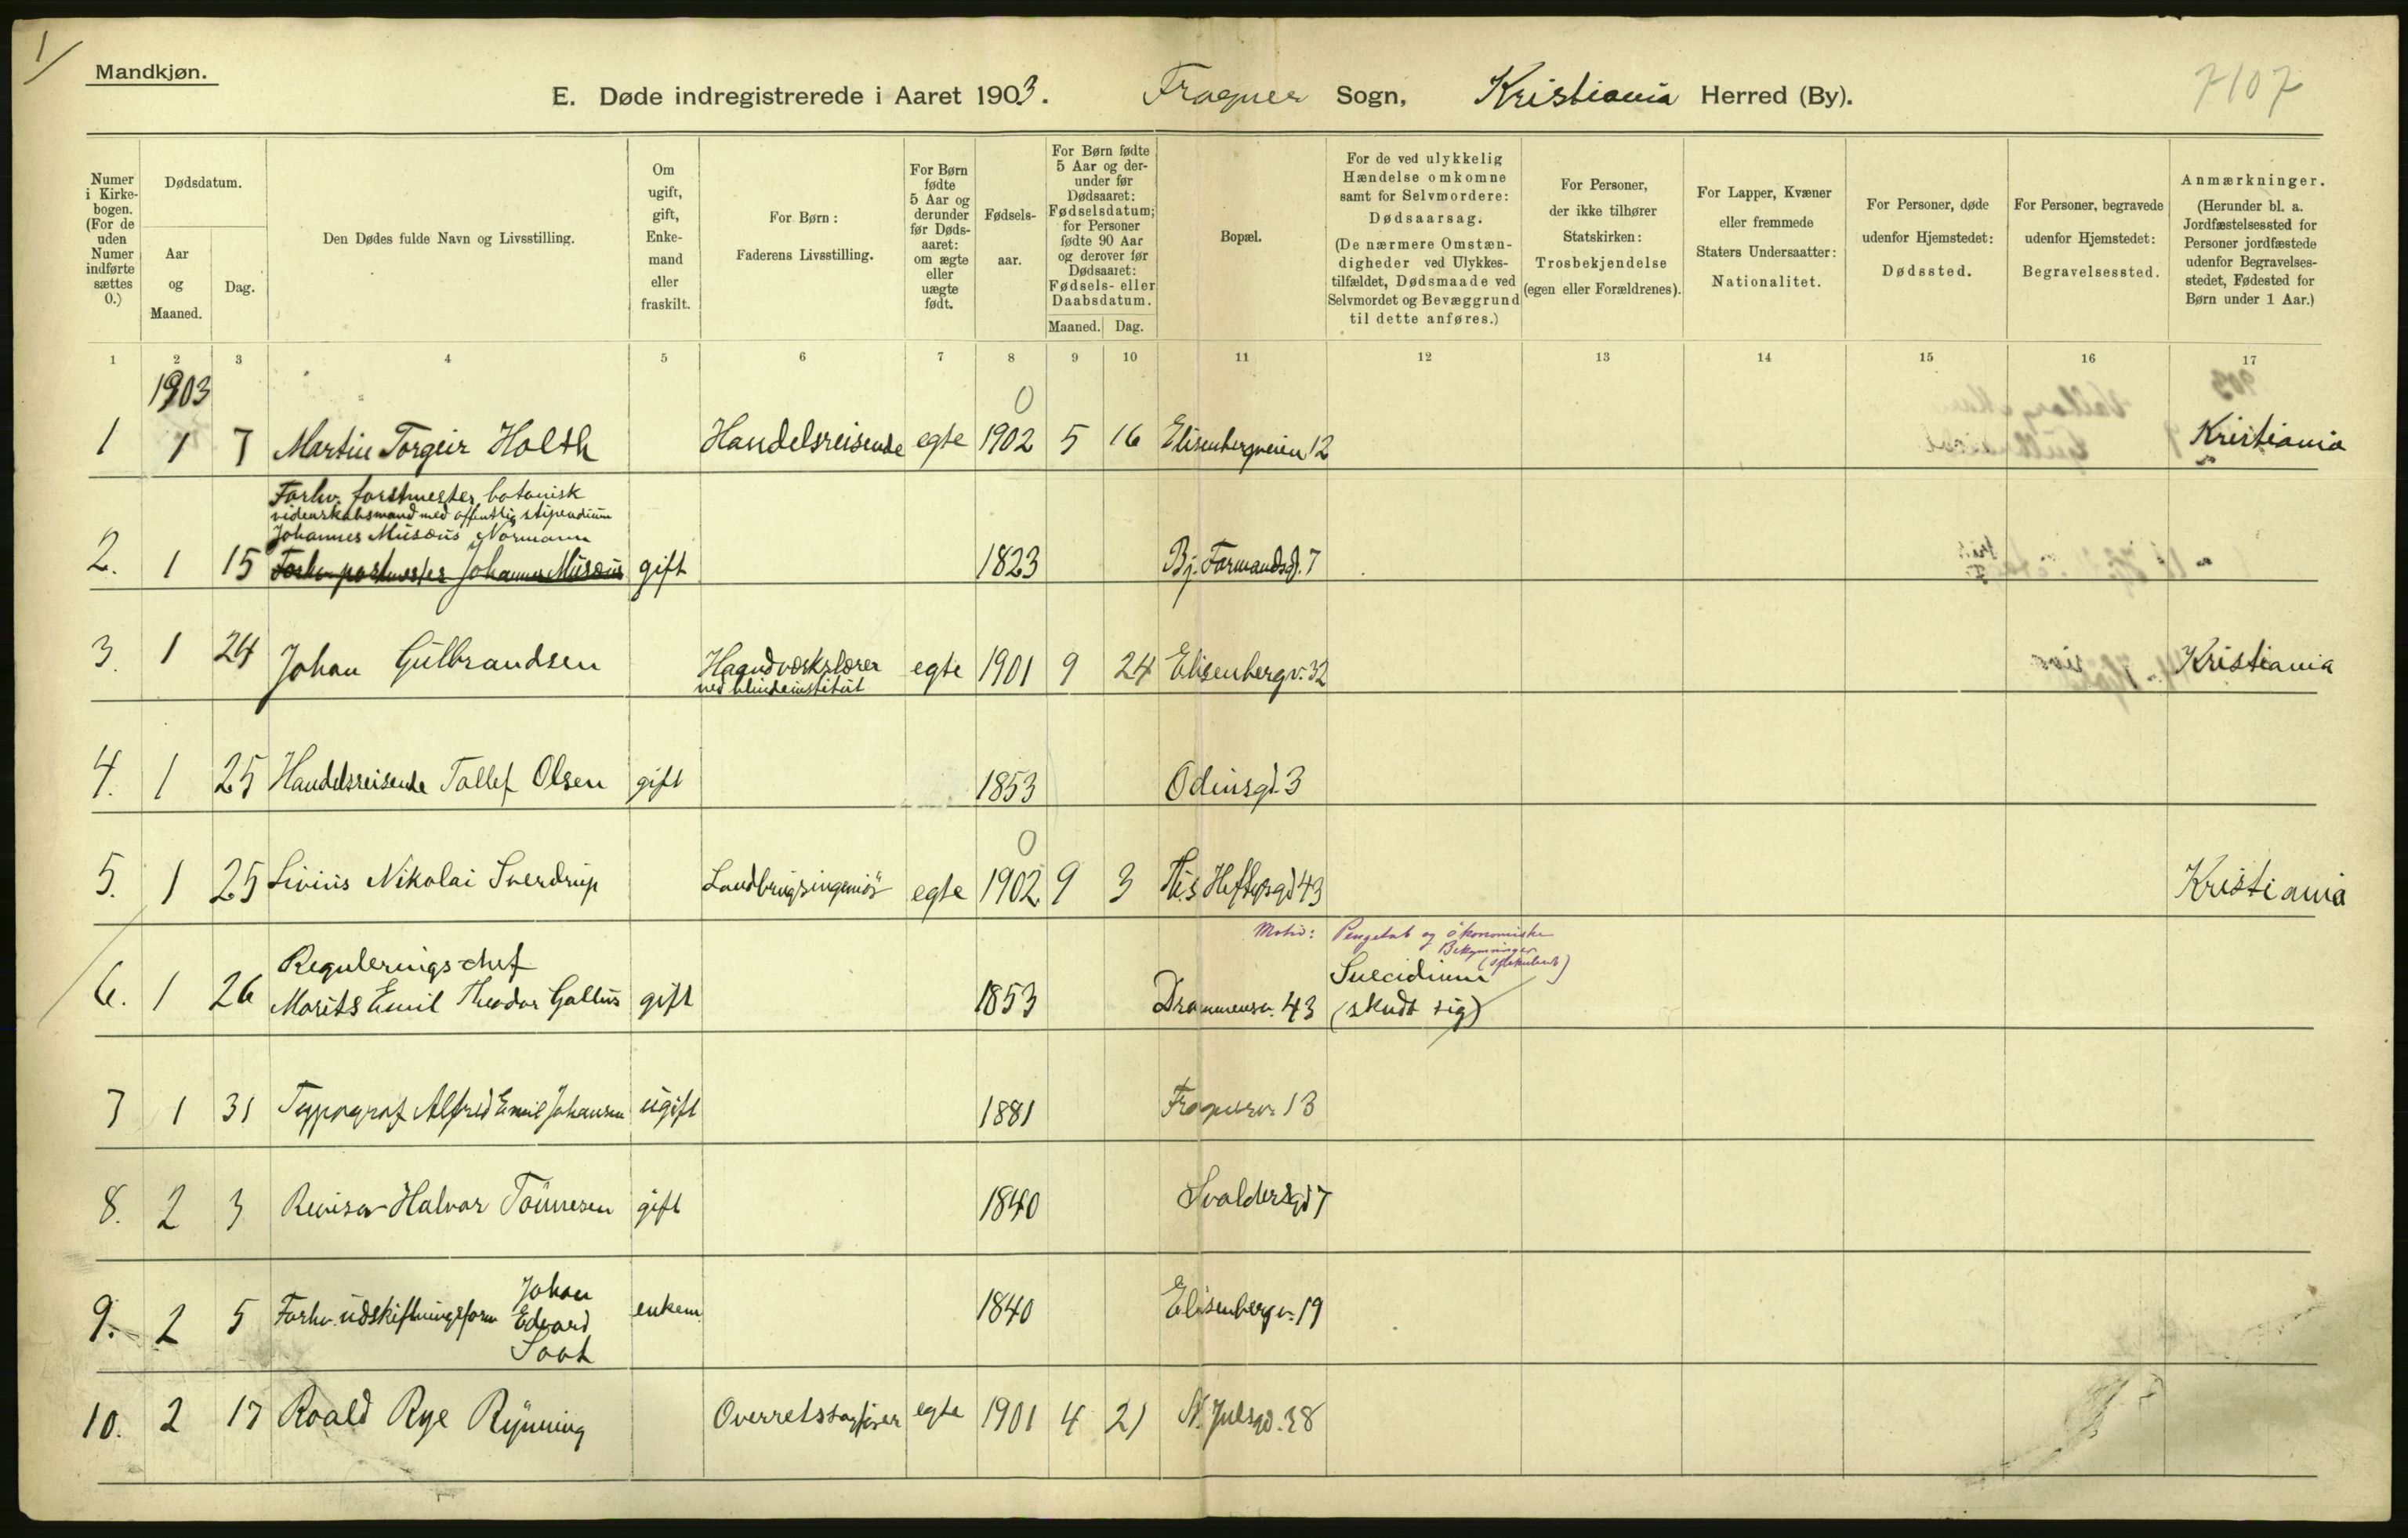 1/
Mandkjøn.
E. Døde indregistrerede i Aaret 1903. Fragner Sogn, Kristiania Herred (By).
7107
Numer i Kirke-bogen. (For de uden Numer indførte sættes 0.)
Dødsdatum.
Aar og Maaned.
Dag.
Den Dødes fulde Navn og Livsstilling.
Om ugift, gift, Enke-mand eller fraskilt.
For Børn: Faderens Livsstilling.
For Børn fødte 5 Aar og derunder før Døds-aaret: om ægte eller uægte født.
Fødsels-aar.
For Børn fødte 5 Aar og der-under før Dødsaaret: Fødselsdatum; for Personer fødte 90 Aar og derover før Dødsaaret: Fødsels- eller Daabsdatum.
Maaned. Dag.
Bopæl.
For de ved ulykkelig Hændelse omkomne samt for Selvmordere: Dødsaarsag. (De nærmere Omstæn-digheder ved Ulykkes-tilfældet, Dødsmaade ved Selvmordet og Bevæggrund til dette anføres.)
For Personer, der ikke tilhører Statskirken: Trosbekjendelse (egen eller Forældrenes).
For Lapper, Kvæner eller fremmede Staters Undersaatter: Nationalitet.
For Personer, døde udenfor Hjemstedet: Dødssted.
For Personer, begravede udenfor Hjemstedet: Begravelsessted.
Anmærkninger. (Herunder bl. a. Jordfæstelsessted for Personer jordfæstede udenfor Begravelses-stedet, Fødested for Børn under 1 Aar.)
1 2 3 4 5 6 7 8 9 10 11 12 13 14 15 16 17
1903
0
1 1 7 Martin Torgeir Holth Handelsreisende egte 1902 5 16 Elisenbergveien 12 Kristiania
Forhv. forstmester, botanisk
videnskabsmand med offentlig stipendium
Johannes Musæus Normann
2. 1 15 Forhv. postmester Johannes Musæus gift 1823 Bj. Farmandsgd. 7
3. 1 24 Johan Gulbrandsen Haandværkslærer egte 1901 9 24 Elisenbergv. 32 Kristiania
ved blindeinstitut
4. 1 25 Handelsreisende Tollef Olsen gift 1853 Odinsgd. 3
0
5. 1 25 Livius Nikolai Sverdrup Landbrugsingeniör egte 1902 9 3 Ths. Heftysgd 43 Kristiania
Motiv: Pengetab og ökonomiske
Bekymringer
Reguleringschef Suecidium
6. 1 26 Morits Emil Theodor Gallus gift 1853 Drammensv. 43 (skudt sig)
7 1 31 Typograf Alfred Emil Johansen ugift 1881 Fragnerv. 13
8. 2 3 Revisor Halvor Tönnesen gift 1840 Svoldersgd 7
Johan
9. 2 5 Forhv. udskiftningsform Edvard enkem. 1840 Elisenbergv. 19
Soot
10. 2 17 Roald Rye Rynning Overretssagförer egte 1901 4 21 N. Julsgd. 38